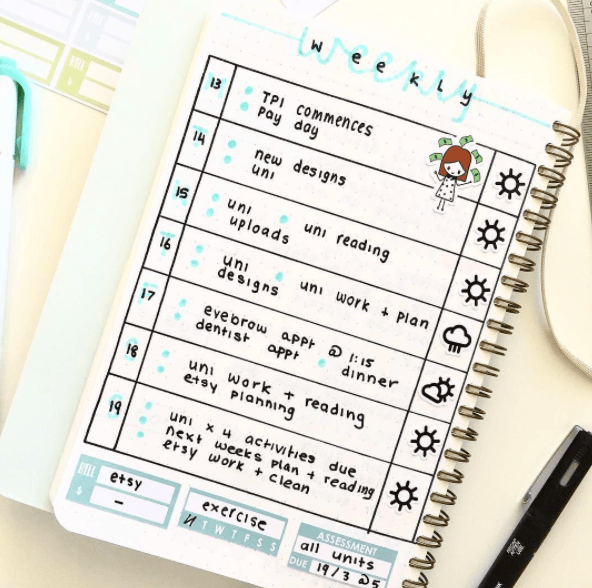 weekly
weekly
13
TPI commences
pay day
14
new designs
uni
15
uni
uni reading
uploads
16
uni
uni work + plan
designs
17
eyebrow appt @ 1:15
dentist appt
dinner
18
uni work + reading
etsy planning
19
uni x 4 activities due
next weeks plan + reading
etsy work + clean
BILL
etsy
$
-
exercise
M T W T F S S
ASSESSMENT
all units
DUE 19/3 @5